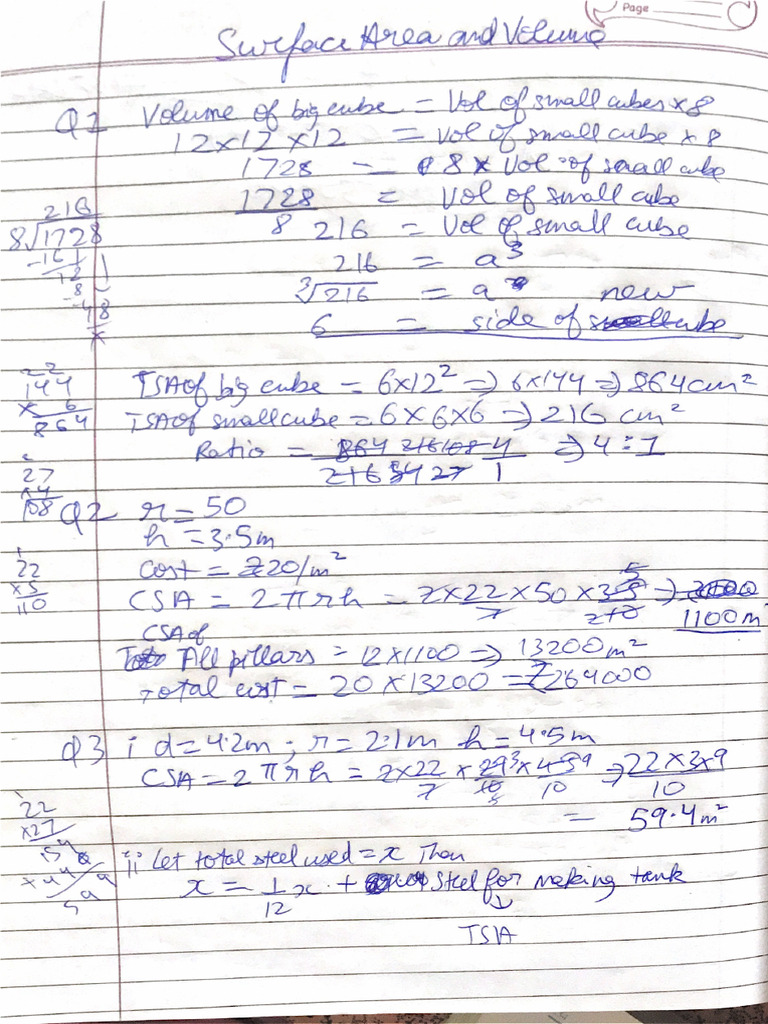 Page
Surface Area and Volume
Q1 Volume of big cube = Vol of small cubes × 8
12 × 12 × 12 = Vol of small cube × 8
1728 = 8 × Vol of small cube
1728/8 = Vol of small cube
216 = Vol of small cube
216 = a³
∛216 = a
6 = side of new cube
216
8√1728
-16
12
-8
48
22
144
× 6
864
TSA of big cube = 6×12² ⇒ 6×144 ⇒ 864 cm²
TSA of small cube = 6×6×6 ⇒ 216 cm²
Ratio = 864 216 108 4 / 216 54 27 1 ⇒ 4:1
27
×4
108
Q2 r = 50
h = 3.5m
cost = ₹20/m²
22
×5
110
CSA = 2πrh = 2 × 22/7 × 50 × 35/10 ⇒ 1100 m²
CSA of
All pillars = 12 × 1100 ⇒ 13200 m²
Total cost = 20 × 13200 = ₹264000
Q3 i d = 4.2m ; r = 2.1m h = 4.5m
CSA = 2πrh = 2×22/7 × 21/10 × 45/10 ⇒ 22×3×9/10
= 59.4 m²
22
×27
ii Let total steel used = x Then
x = 1/12 x + Steel for making tank
↓
TSA